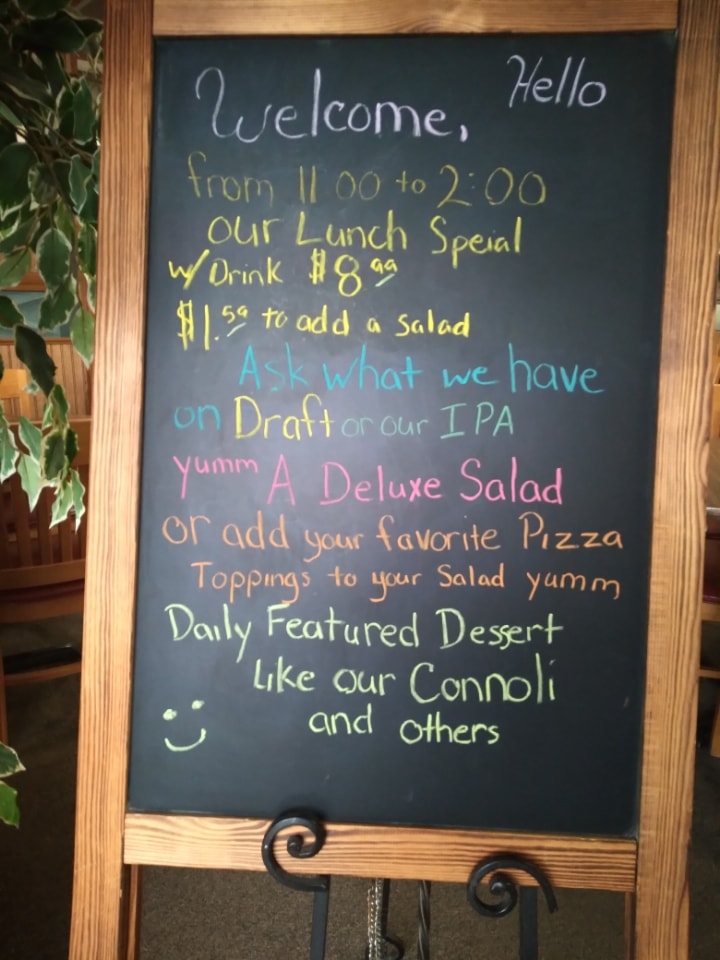 Hello
Welcome,
from 11:00 to 2:00
our Lunch Speial
w/ Drink $8.99
$1.59 to add a salad
Ask what we have
on Draft or our IPA
yumm A Deluxe Salad
or add your favorite Pizza
Toppings to your Salad yumm
Daily Featured Dessert
Like our Connoli
and others